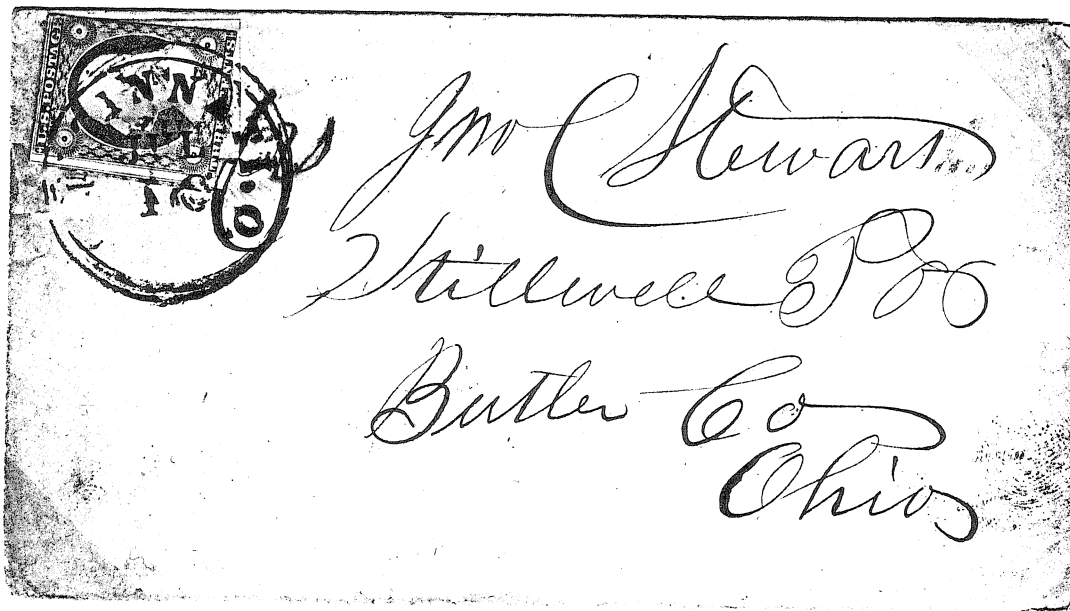 U.S. POSTAGE
INN
16
O.
Jno C Stewart
Stillwell P O
Butler Co
Ohio